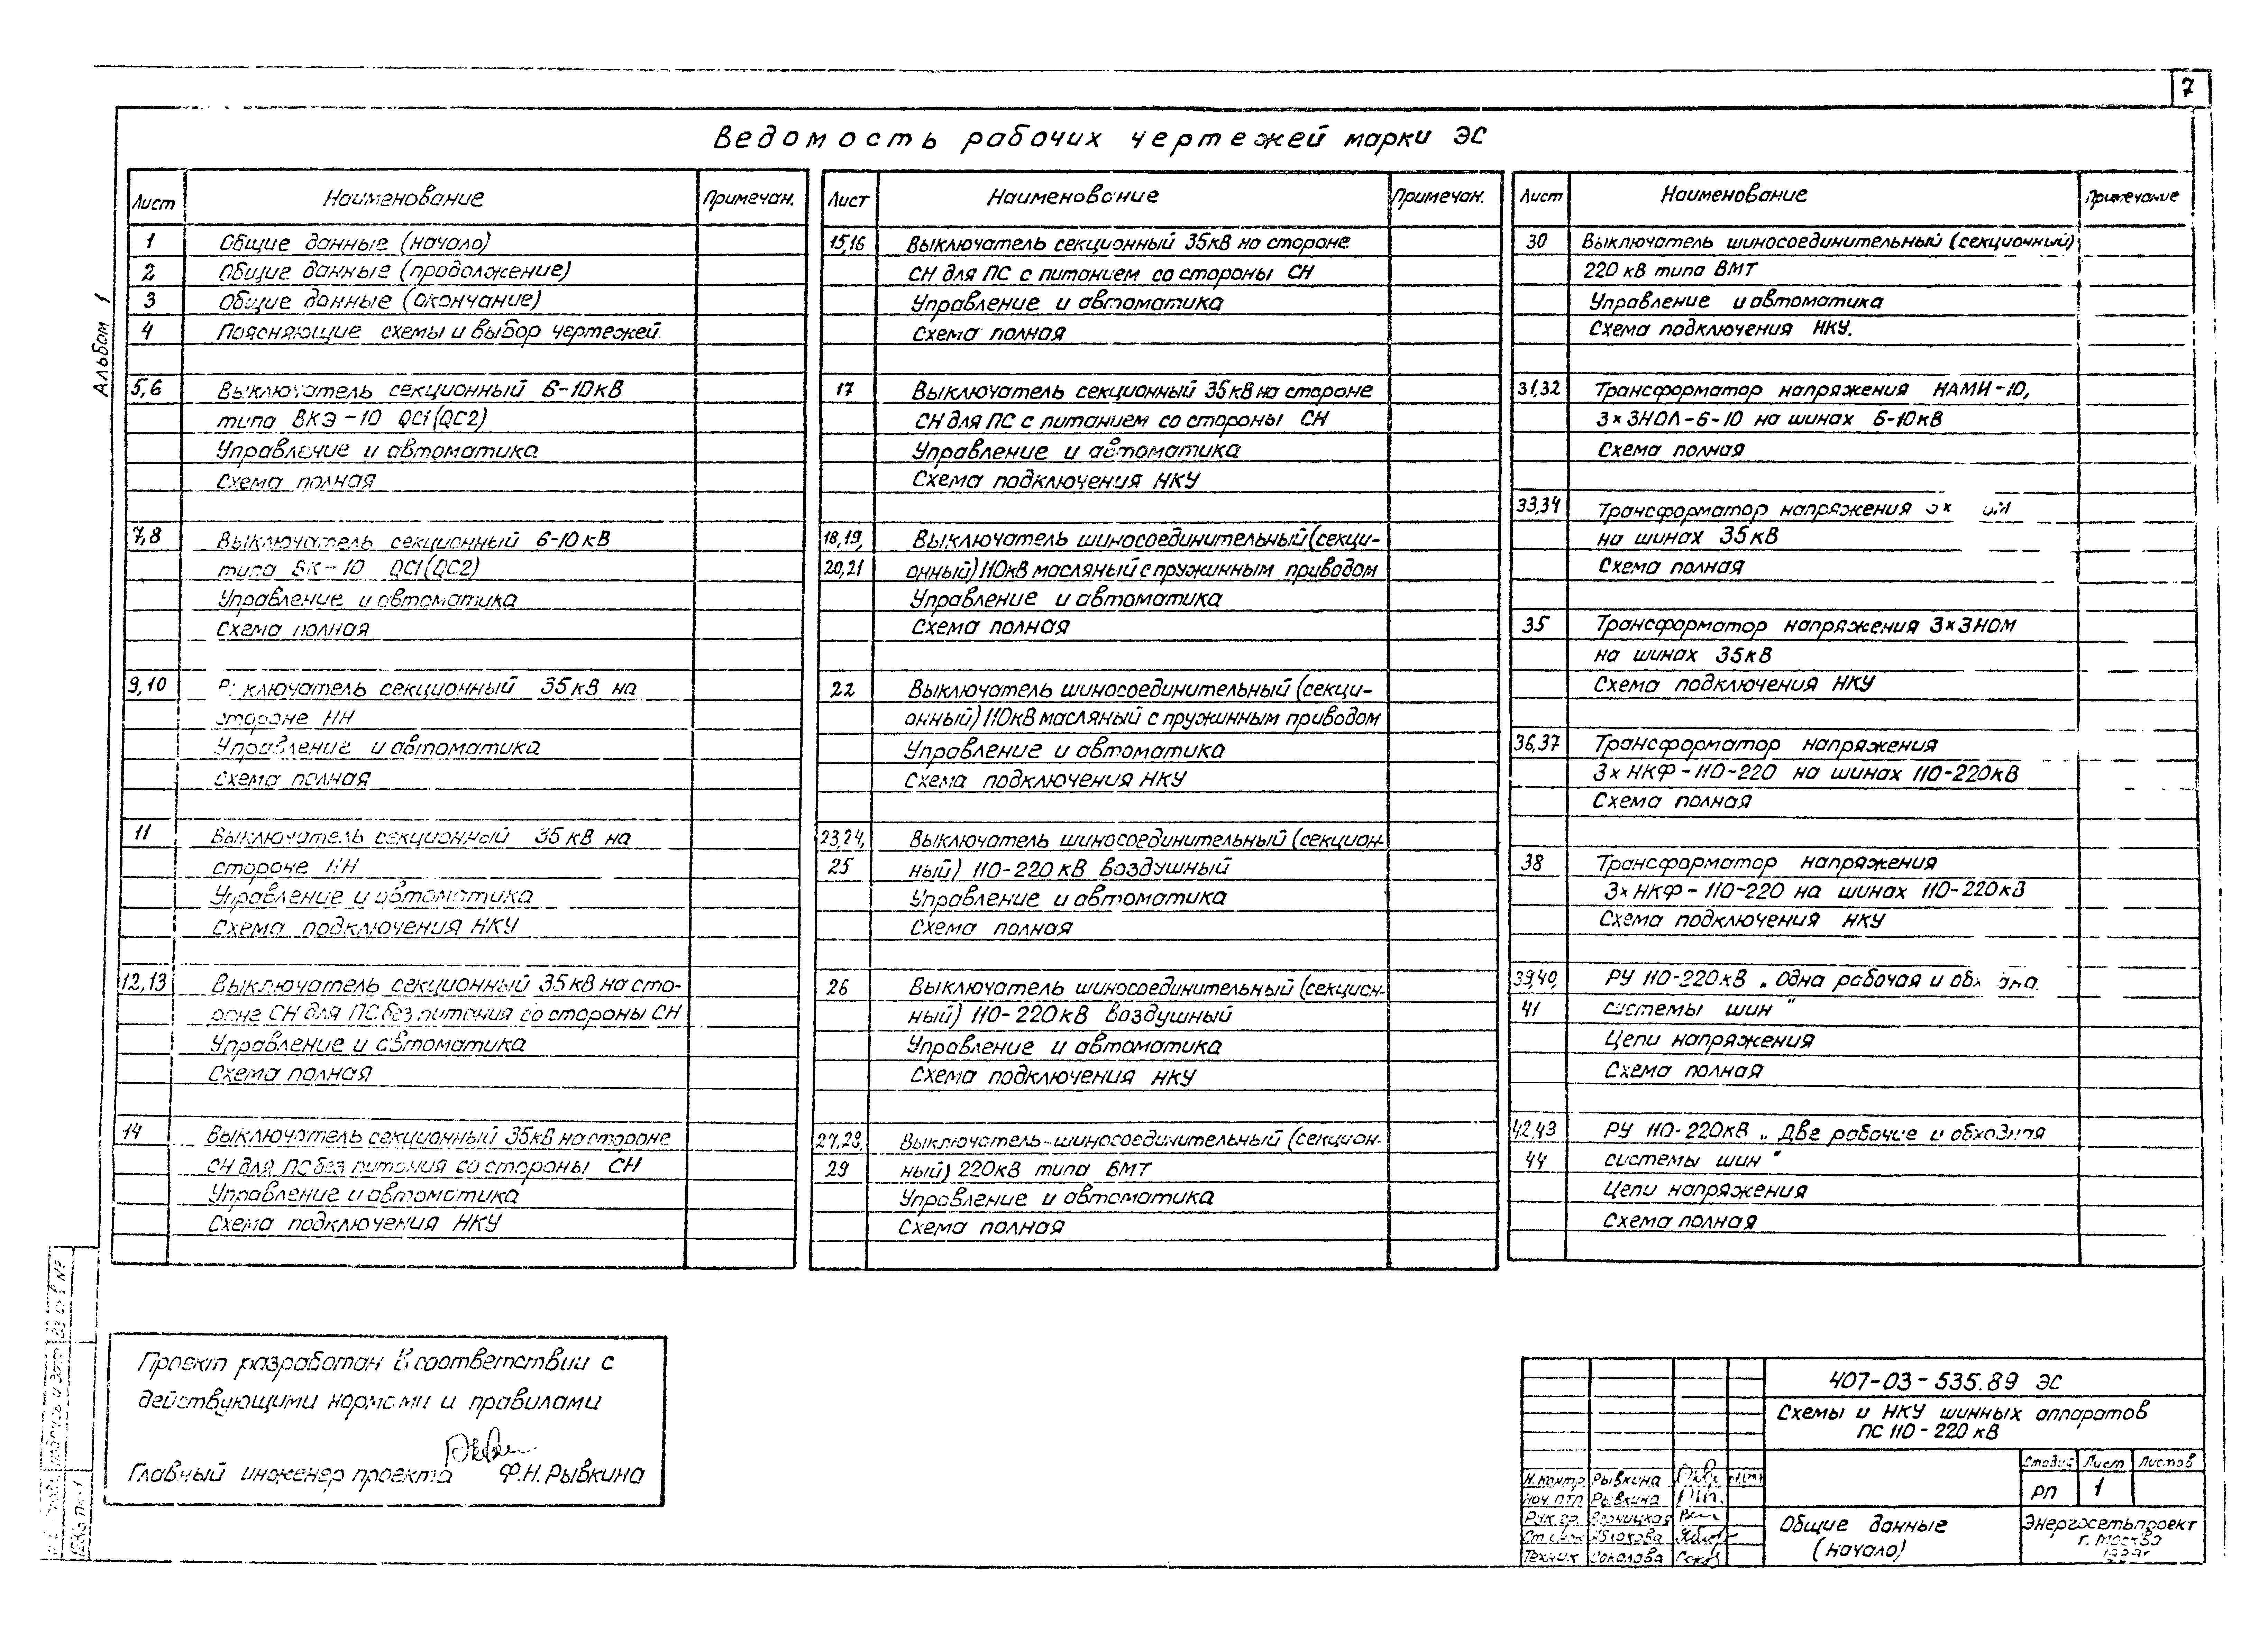 7
Ведомость рабочих чертежей марки ЭС
Альбом 1
Лист Наименование Примечан.
1 Общие данные (начало)
2 Общие данные (продолжение)
3 Общие данные (окончание)
4 Поясняющие схемы и выбор чертежей
5,6 Выключатель секционный 6-10кВ
типа ВКЭ-10 QC1(QC2)
Управление и автоматика
Схема полная
7,8 Выключатель секционный 6-10кВ
типа ВК-10 QC1(QC2)
Управление и автоматика
Схема полная
9,10 Выключатель секционный 35кВ на
стороне НН
Управление и автоматика
Схема полная
11 Выключатель секционный 35кВ на
стороне НН
Управление и автоматика
Схема подключения НКУ
12,13 Выключатель секционный 35кВ на сто-
роне СН для ПС без питания со стороны СН
Управление и автоматика
Схема полная
14 Выключатель секционный 35кВ на стороне
СН для ПС без питания со стороны СН
Управление и автоматика
Схема подключения НКУ
Лист Наименование Примечан.
15,16 Выключатель секционный 35кВ на стороне
СН для ПС с питанием со стороны СН
Управление и автоматика
Схема полная
17 Выключатель секционный 35кВ на стороне
СН для ПС с питанием со стороны СН
Управление и автоматика
Схема подключения НКУ
18,19, Выключатель шиносоединительный (секци-
20,21 онный) 110кВ масляный с пружинным приводом
Управление и автоматика
Схема полная
22 Выключатель шиносоединительный (секци-
онный) 110кВ масляный с пружинным приводом
Управление и автоматика
Схема подключения НКУ
23,24, Выключатель шиносоединительный (секцион-
25 ный) 110-220 кВ воздушный
Управление и автоматика
Схема полная
26 Выключатель шиносоединительный (секцион-
ный) 110-220кВ воздушный
Управление и автоматика
Схема подключения НКУ
27,28, Выключатель-шиносоединительный (секцион-
29 ный) 220кВ типа ВМТ
Управление и автоматика
Схема полная
Лист Наименование Примечание
30 Выключатель шиносоединительный (секционный)
220 кВ типа ВМТ
Управление и автоматика
Схема подключения НКУ.
31,32 Трансформатор напряжения НАМИ-10,
3×ЗНОЛ-6-10 на шинах 6-10кВ
Схема полная
33,34 Трансформатор напряжения 3×
на шинах 35кВ
Схема полная
35 Трансформатор напряжения 3×ЗНОМ
на шинах 35кВ
Схема подключения НКУ
36,37 Трансформатор напряжения
3×НКФ-110-220 на шинах 110-220кВ
Схема полная
38 Трансформатор напряжения
3×НКФ-110-220 на шинах 110-220кВ
Схема подключения НКУ
39,40, РУ 110-220кВ „Одна рабочая и обходная
41 системы шин"
Цепи напряжения
Схема полная
42,43 РУ 110-220кВ „Две рабочие и обходная
44 системы шин"
Цепи напряжения
Схема полная
Проект разработан в соответствии с
действующими нормами и правилами
Главный инженер проекта Ф.Н.Рывкина
407-03-535.89 ЭС
Схемы и НКУ шинных аппаратов
ПС 110-220 кВ
Стадия Лист Листов
РП 1
Н.контр Рывкина
Нач.ПТП Рывкина
Рук.гр.
Ст.инж Яблокова
Техник Соколова
Общие данные
(начало)
Энергосетьпроект
г. Москва